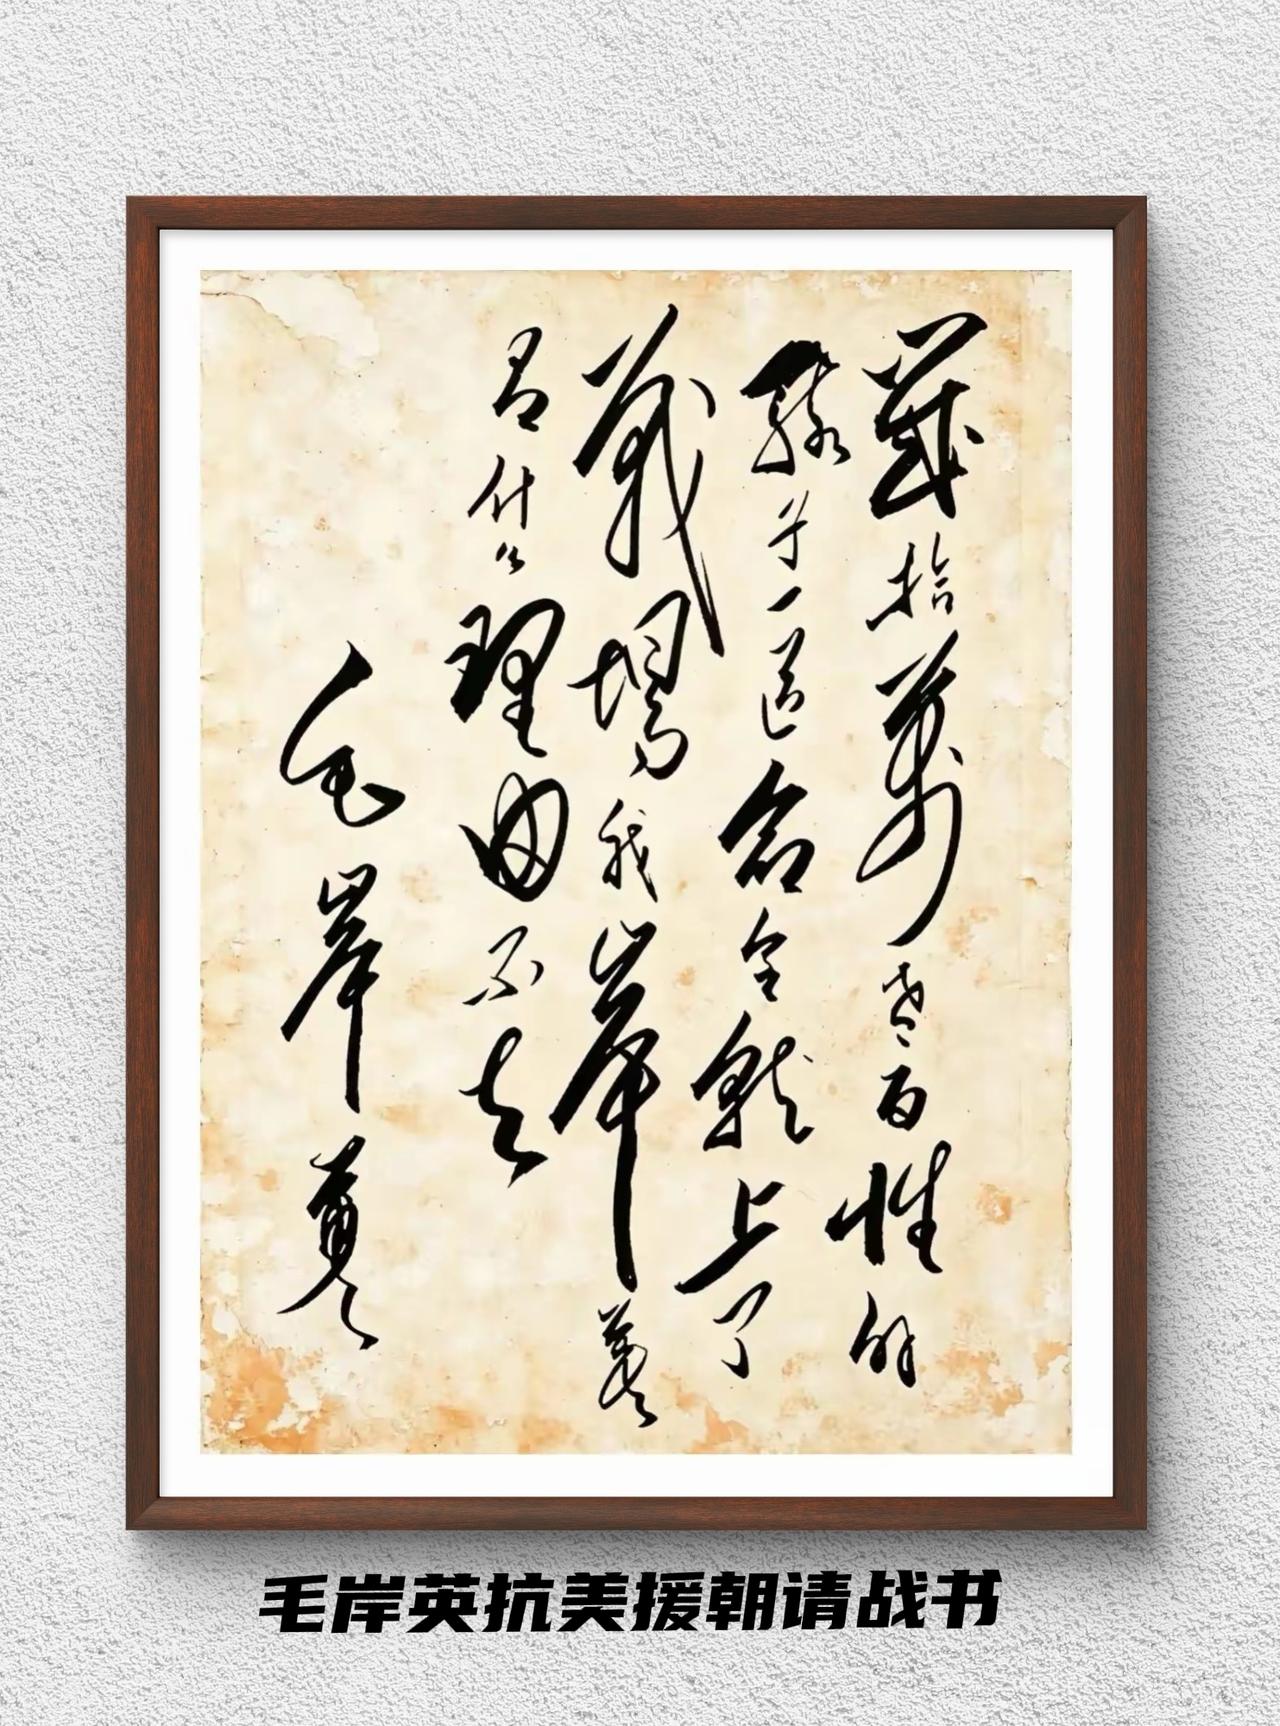 幾拾萬老百姓的
孩子一道命令就上了
戰場我岸英
有什么理由不去
毛岸英
毛岸英抗美援朝请战书